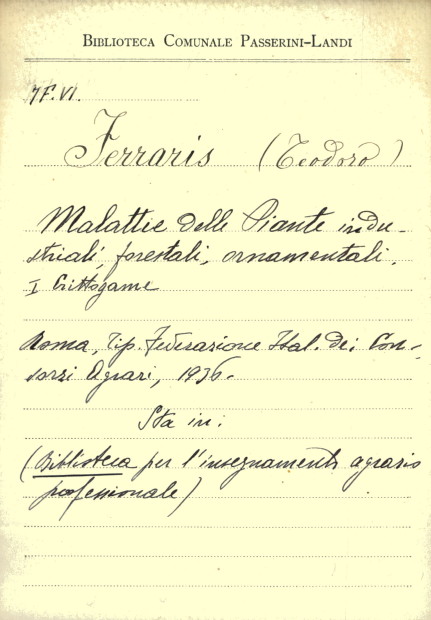 BIBLIOTECA COMUNALE PASSERINI-LANDI
7F.VI.
Ferraris (Teodoro)
Malattie delle Piante indu-
striali, forestali, ornamentali.
I Crittogame
Roma, Tip. Federazione Ital. dei Con-
sorzi Agrari, 1936.
Sta in:
(Biblioteca per l'insegnamento agrario
professionale)